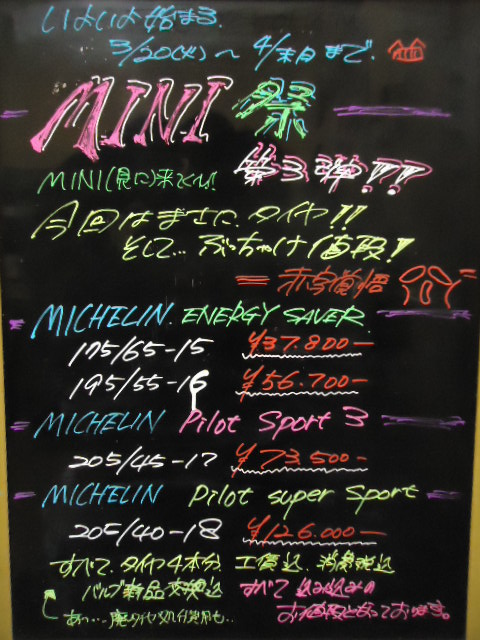 いよいよ始まる
3/20(火)～4/末日まで
MINI 祭
第3弾!!??
MINI(見に)来てくん!
今回はまさに、タイヤ!!
そして… ぶっちゃけ値段!
= 赤字覚悟
MICHELIN ENERGY SAVER
175/65-15 ¥37.800-
195/55-16 ¥56.700-
MICHELIN Pilot Sport 3
205/45-17 ¥73,500-
MICHELIN Pilot super Sport
205/40-18 ¥126.000-
すべて、タイヤ4本分、工賃込、消費税込
バルブ新品交換込 すべて 込み込みの
あっ…廃タイヤ処分費用も.. お値段となっております。